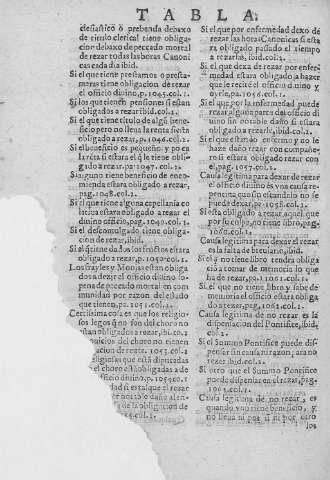 TABLA
clesiastico ò prebenda debaxo
de titulo clerical tiene obliga
cion debaxo de peccado mortal
de rezar todas las horas Canoni
cas cada dia ibid.
Si el que tiene prestamos o presta-
meras tiene obligacion de rezar
el officio divino, p. 1045. col. 1.
Si los que tienen pensiones si estan
obligados a rezar ibid. col. 2.
Si el que tiene titulo de algun bene-
ficio pero no lleva la renta si esta
obligado a rezar, pa 1046. col. 1.
Si el beneficio es pequeño: y po ca
la rēta si estara el q̃ le tiene obli-
gado a rezar. pa. 1047. col. 1.
Si alguno tiene beneficio de enco-
mienda estara obligado a rezar,
pag. 1048. col. 1.
Si el que tiene alguna capellania co
lativa estara obligado a rezar el
divino officio, pag. 1049. col. 1.
Si el descomulgado tiene obliga-
cion de rezar, ibid.
Si el q̃ tiene dos los fructos estara
obligado a rezar, p. 1050. col. 1.
Los frayles y Monjas estan obliga
dos a dezir el officio divino so-
pena de peccado mortal en com
munidad por razon del estado
que tienen, pa. 1051. col. 1.
Certissima cosa es que los religio-
sos legos q̃ no son del choro no
estan obligados a rezar, ibid. co.
giosos del choro no tienen
gacion de rezar. 1053. col.
del choro
e choro estā obligadas a de
officio divino, p. 1054. co.
dad si esta el que rezar
alguna
de la obligacion de
col. 2.
Si el que por enfermedad dexò de
rezar las horas Canonicas si esta
ra obligado passado el tiempo
a rezarlas, ibid. col. 2.
Si el que dexa de rezar por enfer-
medad estara obligado a hazer
que le recitē el officio divino y
oyrlo, pa. 1056. col. 2.
Si el que por la enfermedad puede
rezar alguna partes del officio di
uino sin notable daño si estara
obligado a rezarle, ibid. col. 2.
Si el que estādo enfermo y no le
haze daño rezar con compañe-
ro si estara obligado rezar con
el, pag. 1057. col. 1.
Causa legitima para dexar de rezar
el officio divino es vna causa re-
pentina que so escandalo no se
puede dexar, pa. 1058. col. 1.
Si esta obligado a rezar aquel que
por su culpa no tiene libro, pag.
1060. col. 1.
Causa legitima para dexar el rezar
es la falta de breviario, ibid.
Si el q̃ no tiene libro tendra obliga
cion de tomar de memoria lo que
ha de rezar, p. 1061. col. 1.
Si el que no tiene libro y sabe de
memoria el officio estara obliga
do a rezar, pag. 1062. col. 1.
Causa legitima de no rezar es la
dispensacion del Pontifice, ibid.
col. 2.
Si el Summo Pontifice puede dis-
pensar sin causa ni razon, para no
rezar. ibid. col. 2.
Si otro que el Summo Pontifice
puede dispensar en el rezar, pag.
1063. col. 2.
Causa legitima de no rezar, es
quando vno tiene beneficio, y
no lleva ni por si ni por otro
los